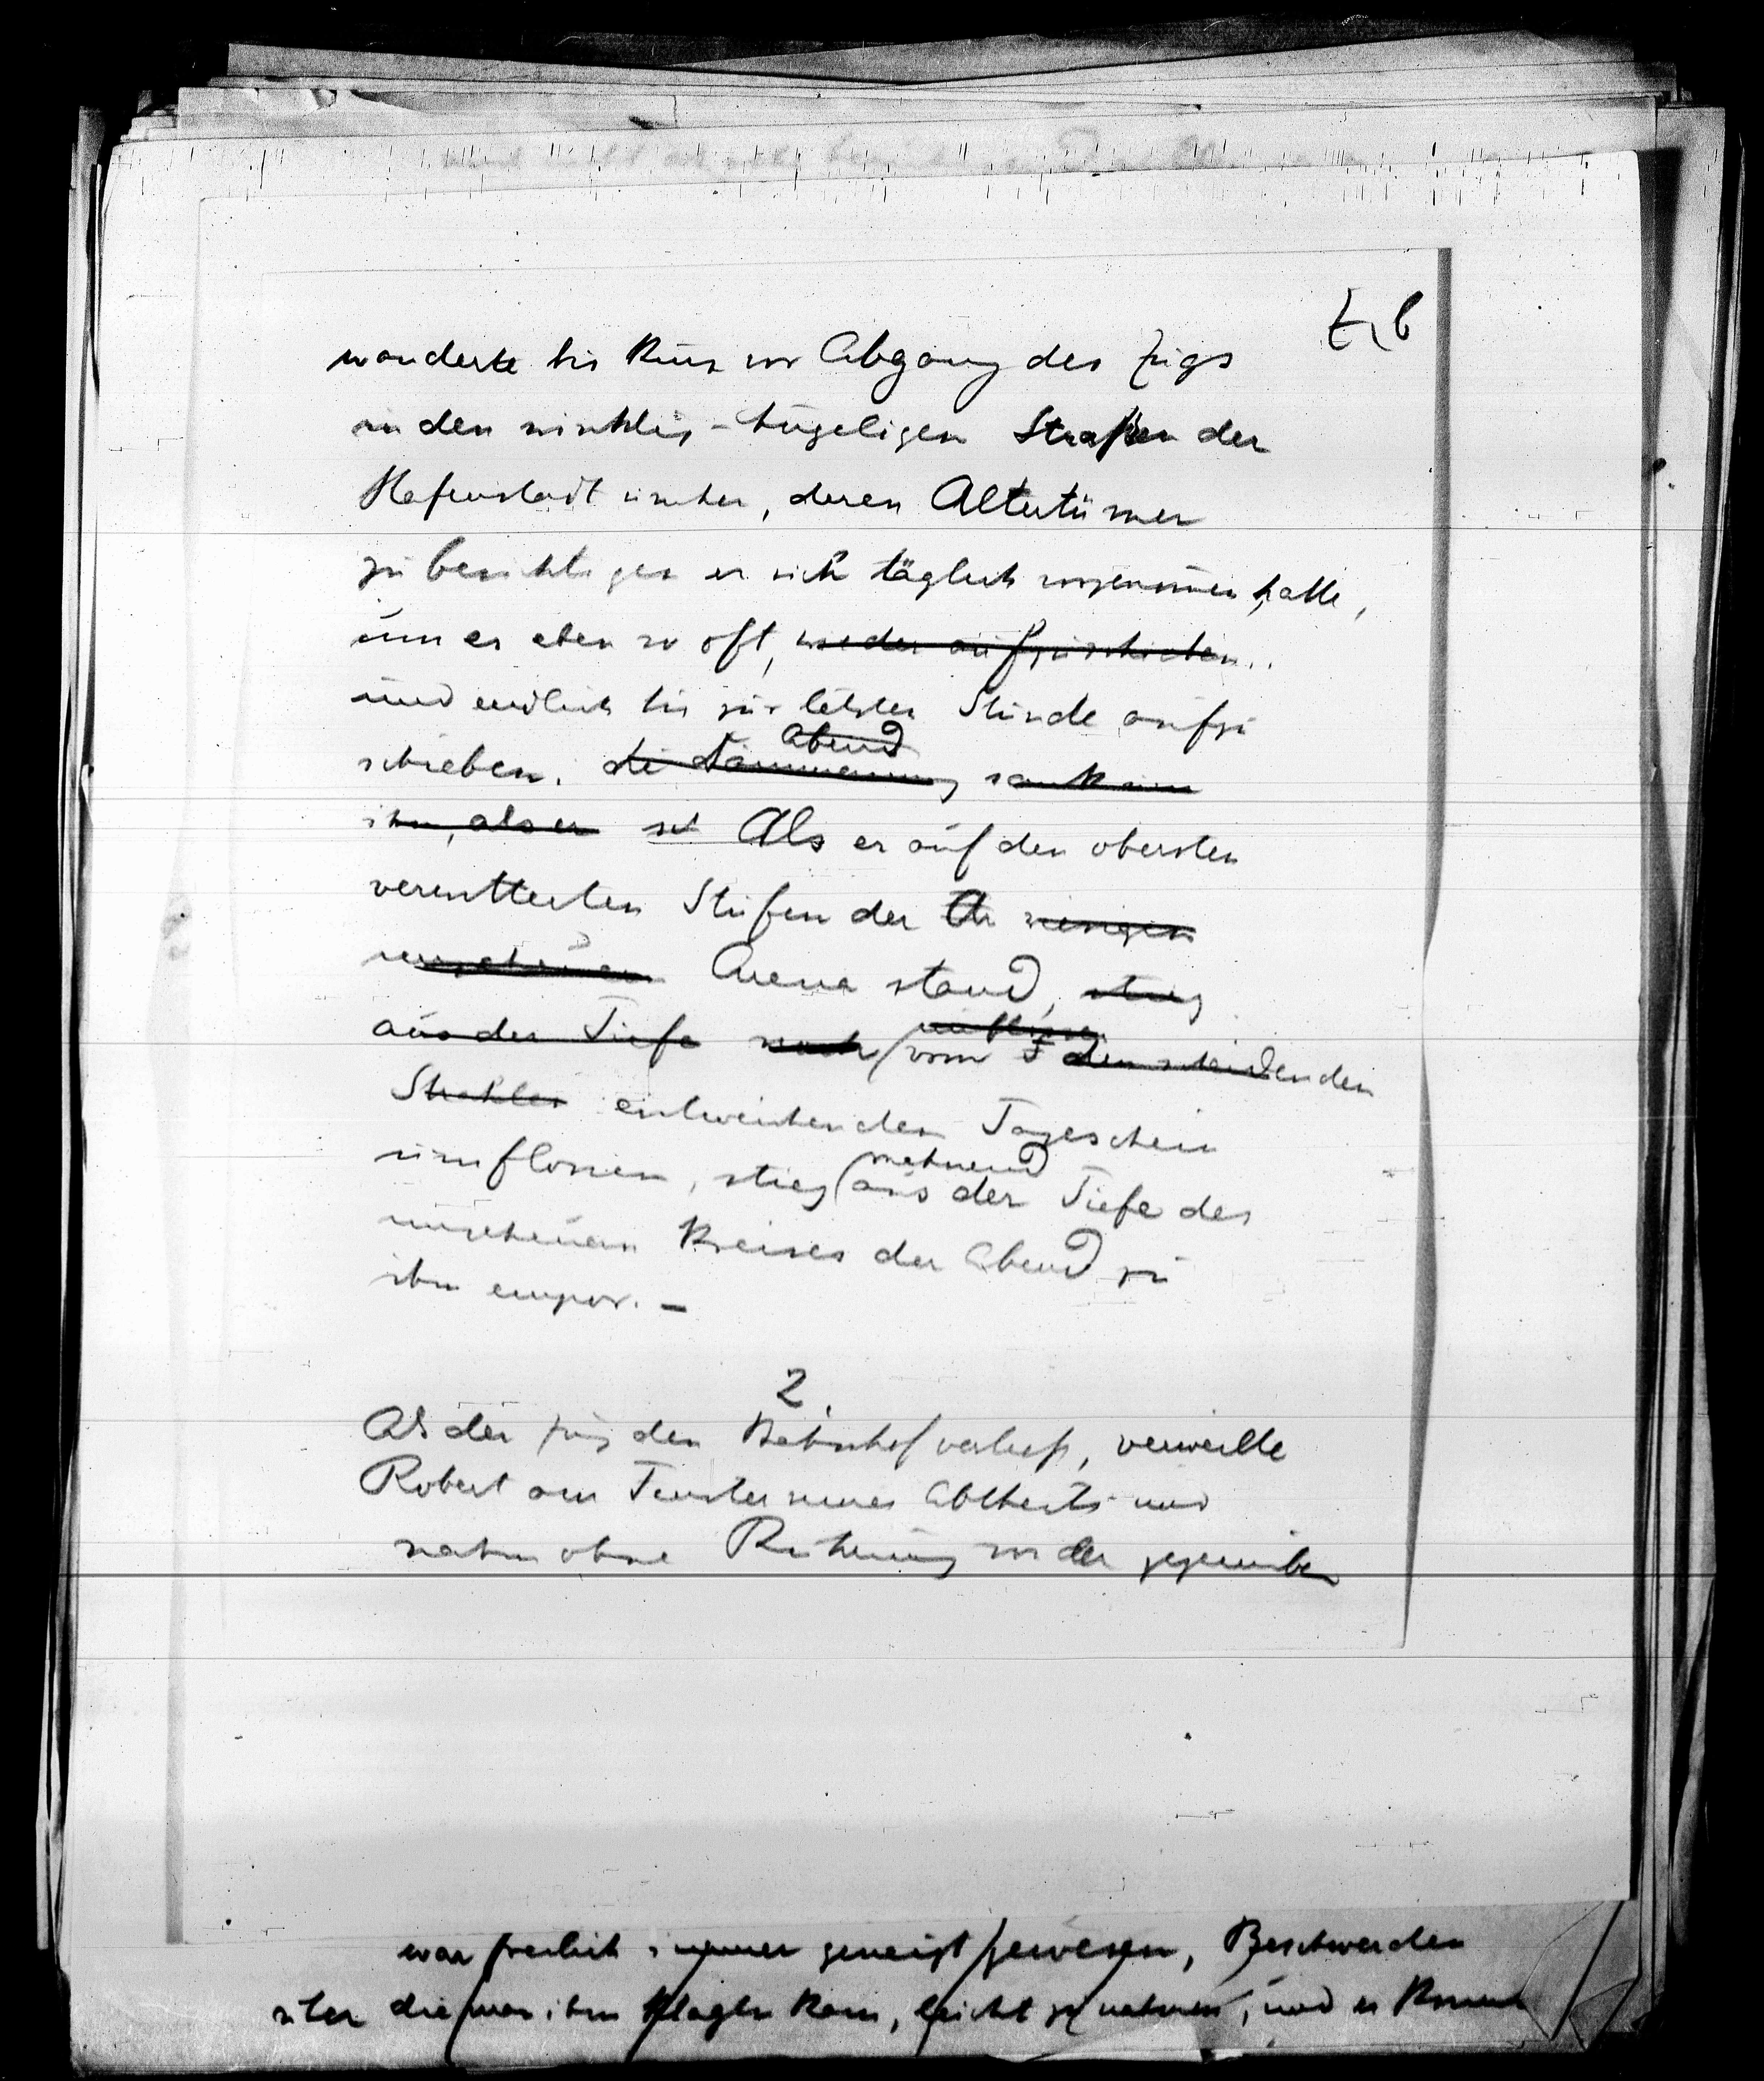 wanderte bis kurz vor Abgang des Zugs
in den winklig-hügeligen Straßen der
Hafenstadt umher, deren Altertümer
zu besichtigen er sich täglich vorgenommen hatte,
um es eben so oft, wieder aufzuschieben..
und endlich bis zur letzten Stunde aufzu
Abend
schieben. die Dämmerung sank um
ihn, als er Als er auf den obersten
verwitterten Stufen der riesigen
ungeheuren Arena stand, stieg
umflossen
aus der Tiefe noch vom den scheidenden
Strahlen entweichenden Tagesschein
mahnend
umflossen, stieg aus der Tiefe des
ungeheuern Kreises der Abend zu
ihm empor. –
2.
Als der Zug den Bahnhof verließ, verweilte
Robert am Fenster seines Abtheils und
nahm ohne Rührung von der gegenüber
war freilich immer geneigt gewesen, Beschwerden
über die man ihm klagen kam, leicht zu nehmen, und er konnte